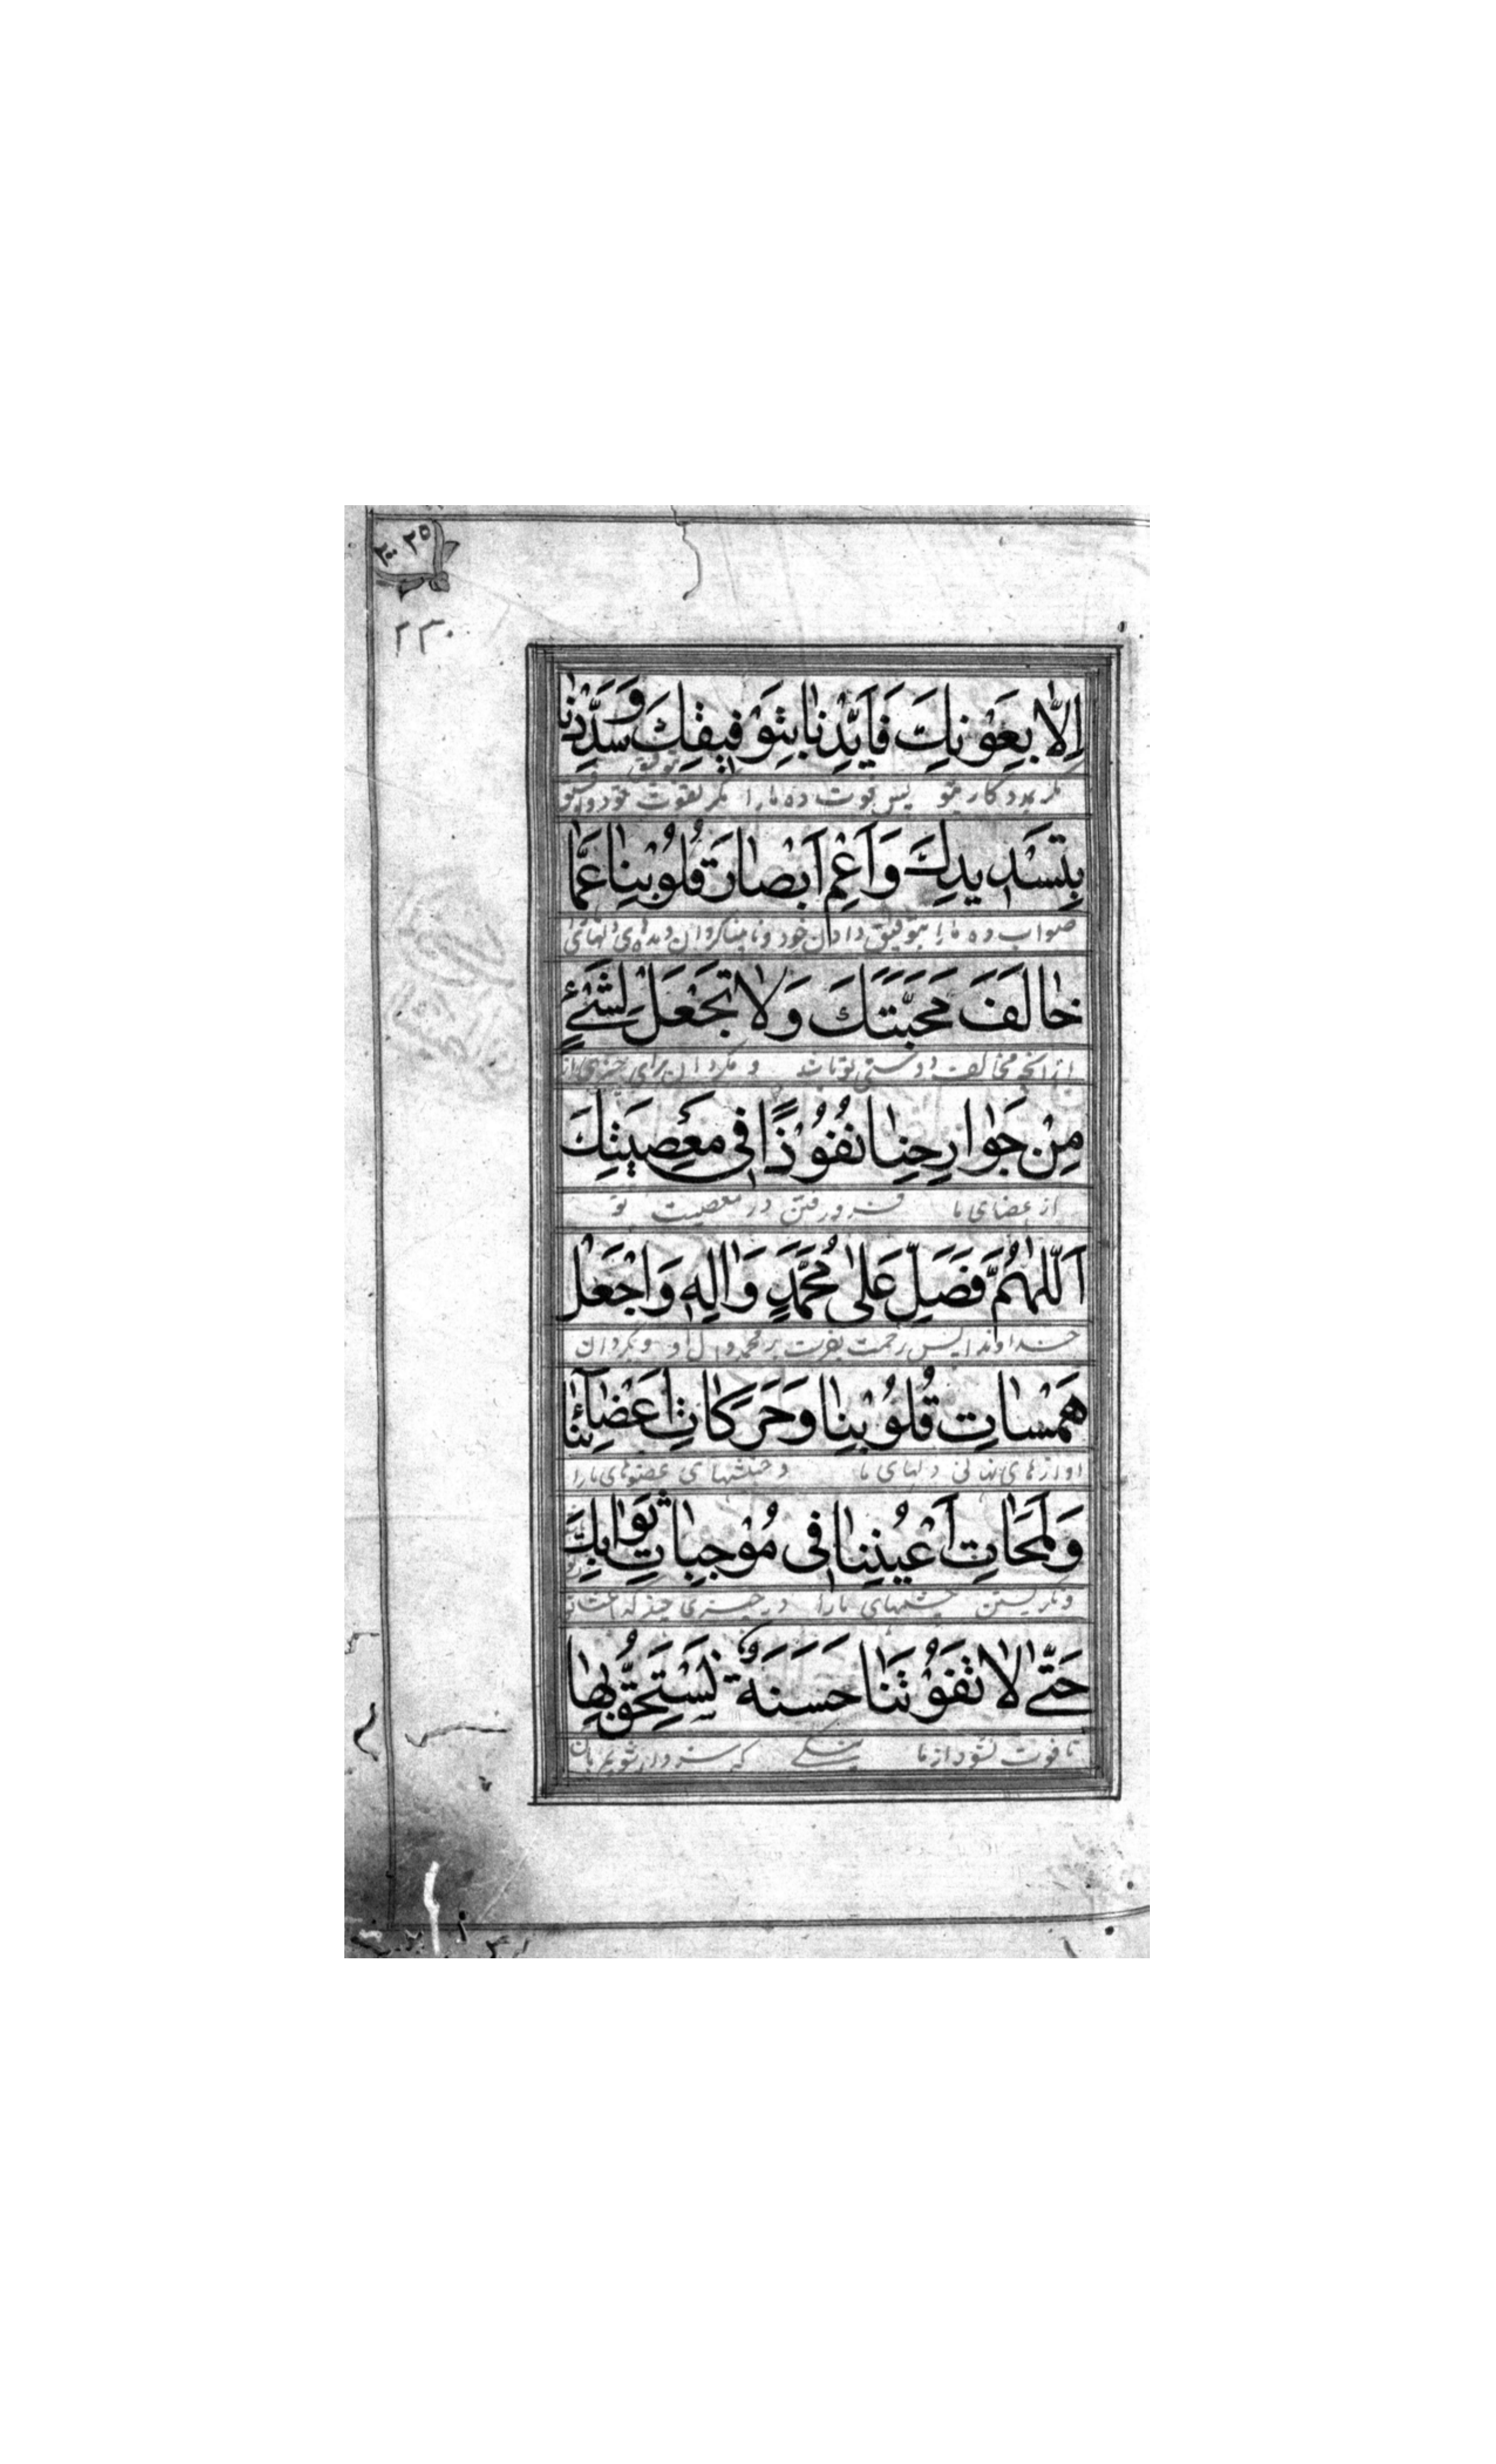 ۲۳۰
اِلّٰا بِعَوْنِكَ فَاَيِّدْنٰا بِتَوْفيقِكَ وَسَدِّدْنٰا
مگر بمددکاری تو پس قوت ده ما را مگر بقوت خود و
بِتَسْديدِكَ وَاَعْمِ اَبْصٰارَ قُلُوْبِنٰا عَمّٰا
صواب ده ما را بتوفیق دادن خود و نابینا گردان دیدهای دلهای
خٰالَفَ مَحَبَّتَكَ وَلٰا تَجْعَلْ لِشَيْءٍ
از انچه مخالف دوستی تو باشد و مگردان برای چیزی از
مِنْ جَوٰارِحِنٰا نُفُوْذًا في مَعْصِيَتِكَ
از عضای ما فرو رفتن در معصیت تو
اَللّٰهُمَّ فَصَلِّ عَلىٰ مُحَمَّدٍ وَاٰلِهٖ وَاجْعَلْ
خداوندا پس رحمت بفرست بر محمد و ال او و بگردان
هَمَسٰاتِ قُلُوْبِنٰا وَحَرَكٰاتِ اَعْضٰائِنٰا
اوازهای نهانی دلهای ما و جنبشهای عضوهای ما را
وَلَمَحٰاتِ اَعْيُنِنٰا في مُوْجِبٰاتِ ثَوٰابِكَ
و نگریستن چشمهای ما را در چیزی چند که
حَتّىٰ لٰا تَفُوْتَنٰا حَسَنَةٌ نَسْتَحِقُّ بِهٰا
تا فوت نشود از ما نیکی که سزاوار شویم بان